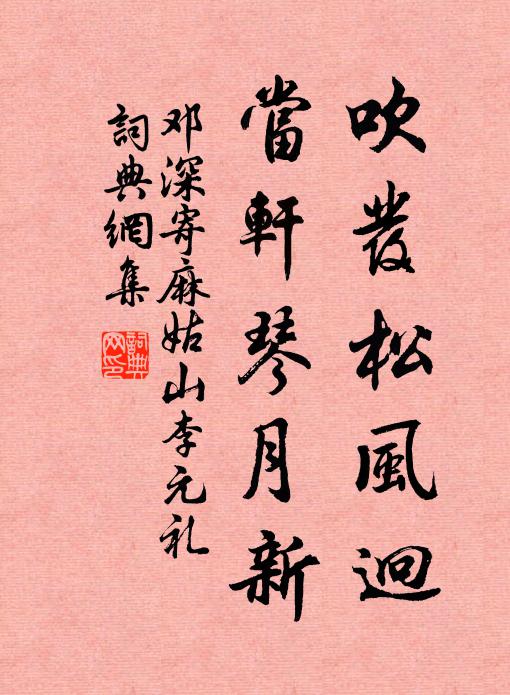 吹发松風迥
當軒琴月新
邓深寄麻姑山李元礼
詞典網集
詞典网印